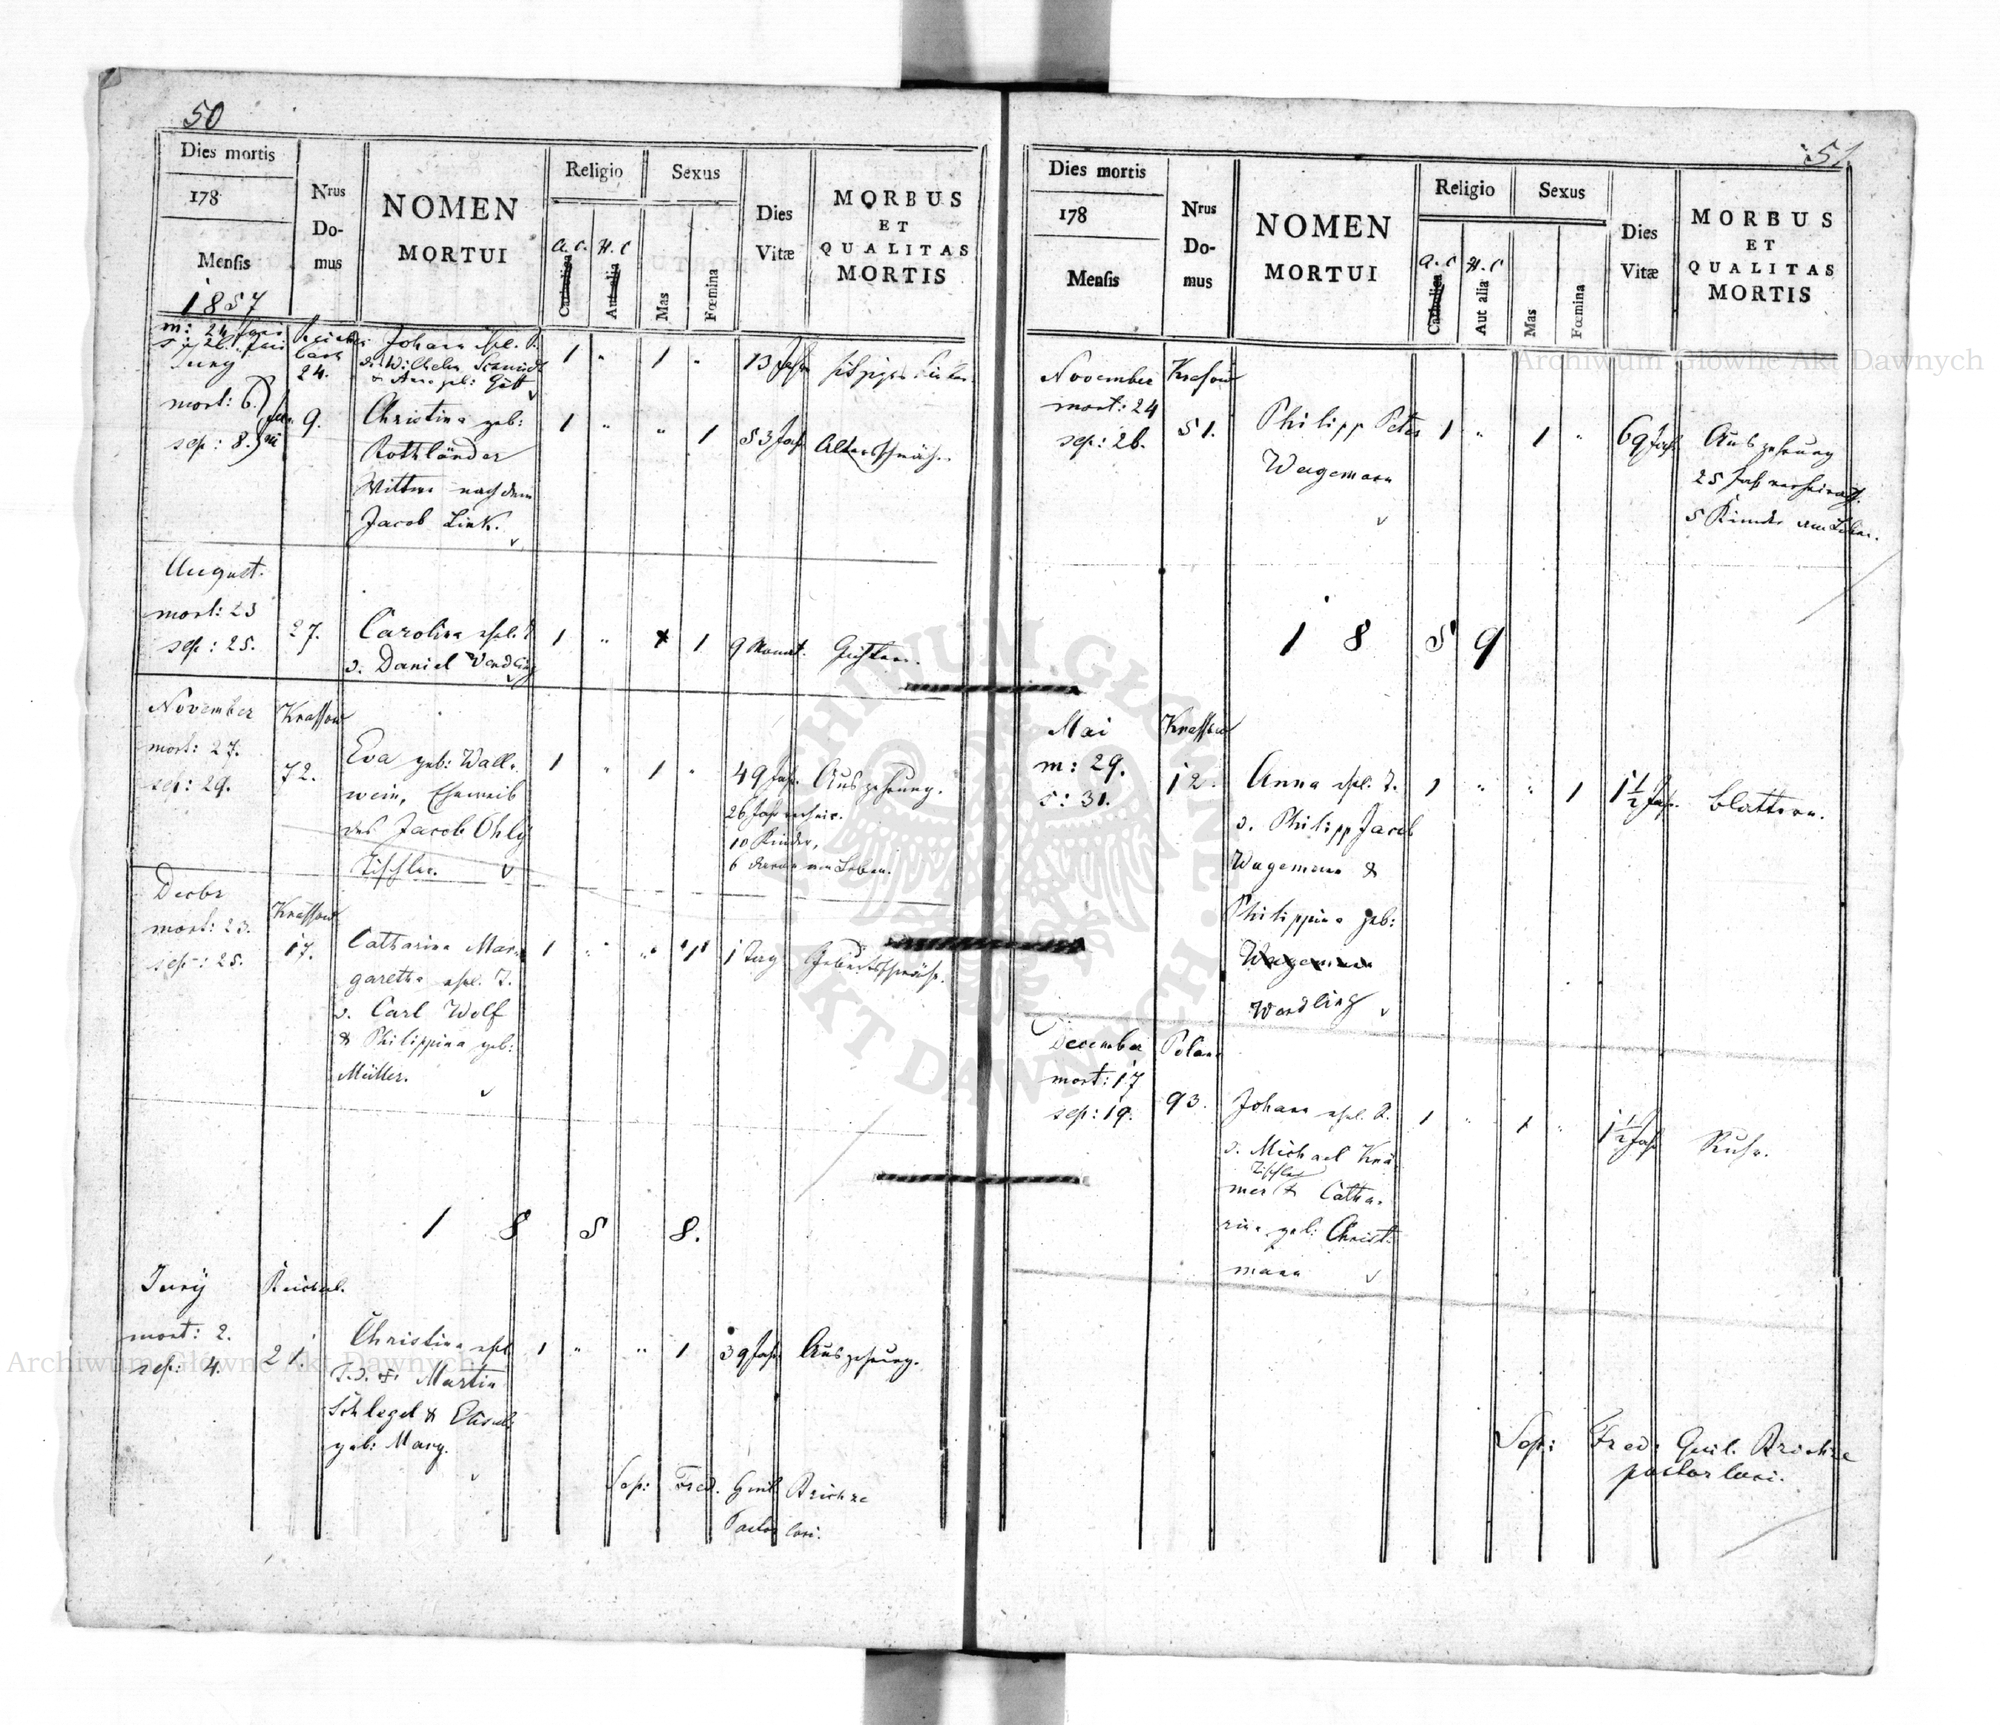 50
Dies mortis
178
Mensis
1857
Nrus
Do-
mus
NOMEN
MORTUI
Religio
a. c.
Catholica
H. C
Aut alia
Sexus
Mas
Fœmina
Dies
Vitæ
MORBUS
ET
QUALITAS
MORTIS
24.
Johann ehel. S.
v. Wilhelm Schmidt
1 " 1 "
13 Jahr
mort: 6.
sep: 8.
9.
Christina geb:
Rothländer
Wittwe nach dem
Jacob Link.
1 " " 1
53 Jahr
Altersschwäche.
August.
mort: 23
sep: 25.
27.
Carolina ehel. T.
v. Daniel Wendling
1 " 1
9 Monat.
November
mort: 27.
sep: 29.
Krassow
72.
Eva geb: Wall-
wein, Eheweib
des Jacob Ohly
Tischler.
1 " 1 "
49 Jahr.
26 Jahr verheir.
10 Kinder,
6 davon am Leben.
Auszehrung.
Decbr
mort: 23.
sep: 25.
Krassow
17.
Catharina Mar-
garetha ehel. T.
v. Carl Wolf
& Philippina geb:
Müller.
1 " " 1
1 Tag
Geburtsschwäche.
1 8 5 8.
Juny
mort: 2.
sep: 4.
Reichenb.
21.
Christina ehel.
T. v. Martin
Schlegel & Elisab:
geb: Mary.
1 " " 1
39 Jahr
Auszehrung.
Sep: Fred. Guil. Brichze
Pastor loci.
51
Dies mortis
178
Mensis
Nrus
Do-
mus
NOMEN
MORTUI
Religio
a. c
Catholica
H. C
Aut alia
Sexus
Mas
Fœmina
Dies
Vitæ
MORBUS
ET
QUALITAS
MORTIS
November
mort: 24
sep: 26.
Krasow
51.
Philipp Peter
Wagemann
1 " 1 "
69 Jahr
Auszehrung
25 Jahr verheirath.
5 Kinder am Leben.
1 8 5 9
Mai
m: 29.
s: 31.
Krassow
12.
Anna ehel. T.
v. Philipp Jacob
Wagemann &
Philippina geb:
Wagemann
Wendling
1 " " 1
1 1/2 Jahr.
Blattern.
December
mort: 17
sep: 19.
Polan
93.
Johann ehel. S.
v. Michael Krä-
Tischler
mer & Catha-
rina geb: Christ-
mann
1 " 1 "
1 1/2 Jahr
Ruhr.
Sep: Fred: Guil. Brichze
pastor loci.
Archiwum Główne Akt Dawnych
Archiwum Główne Akt Dawnych
ARCHIWUM GŁÓWNE AKT DAWNYCH